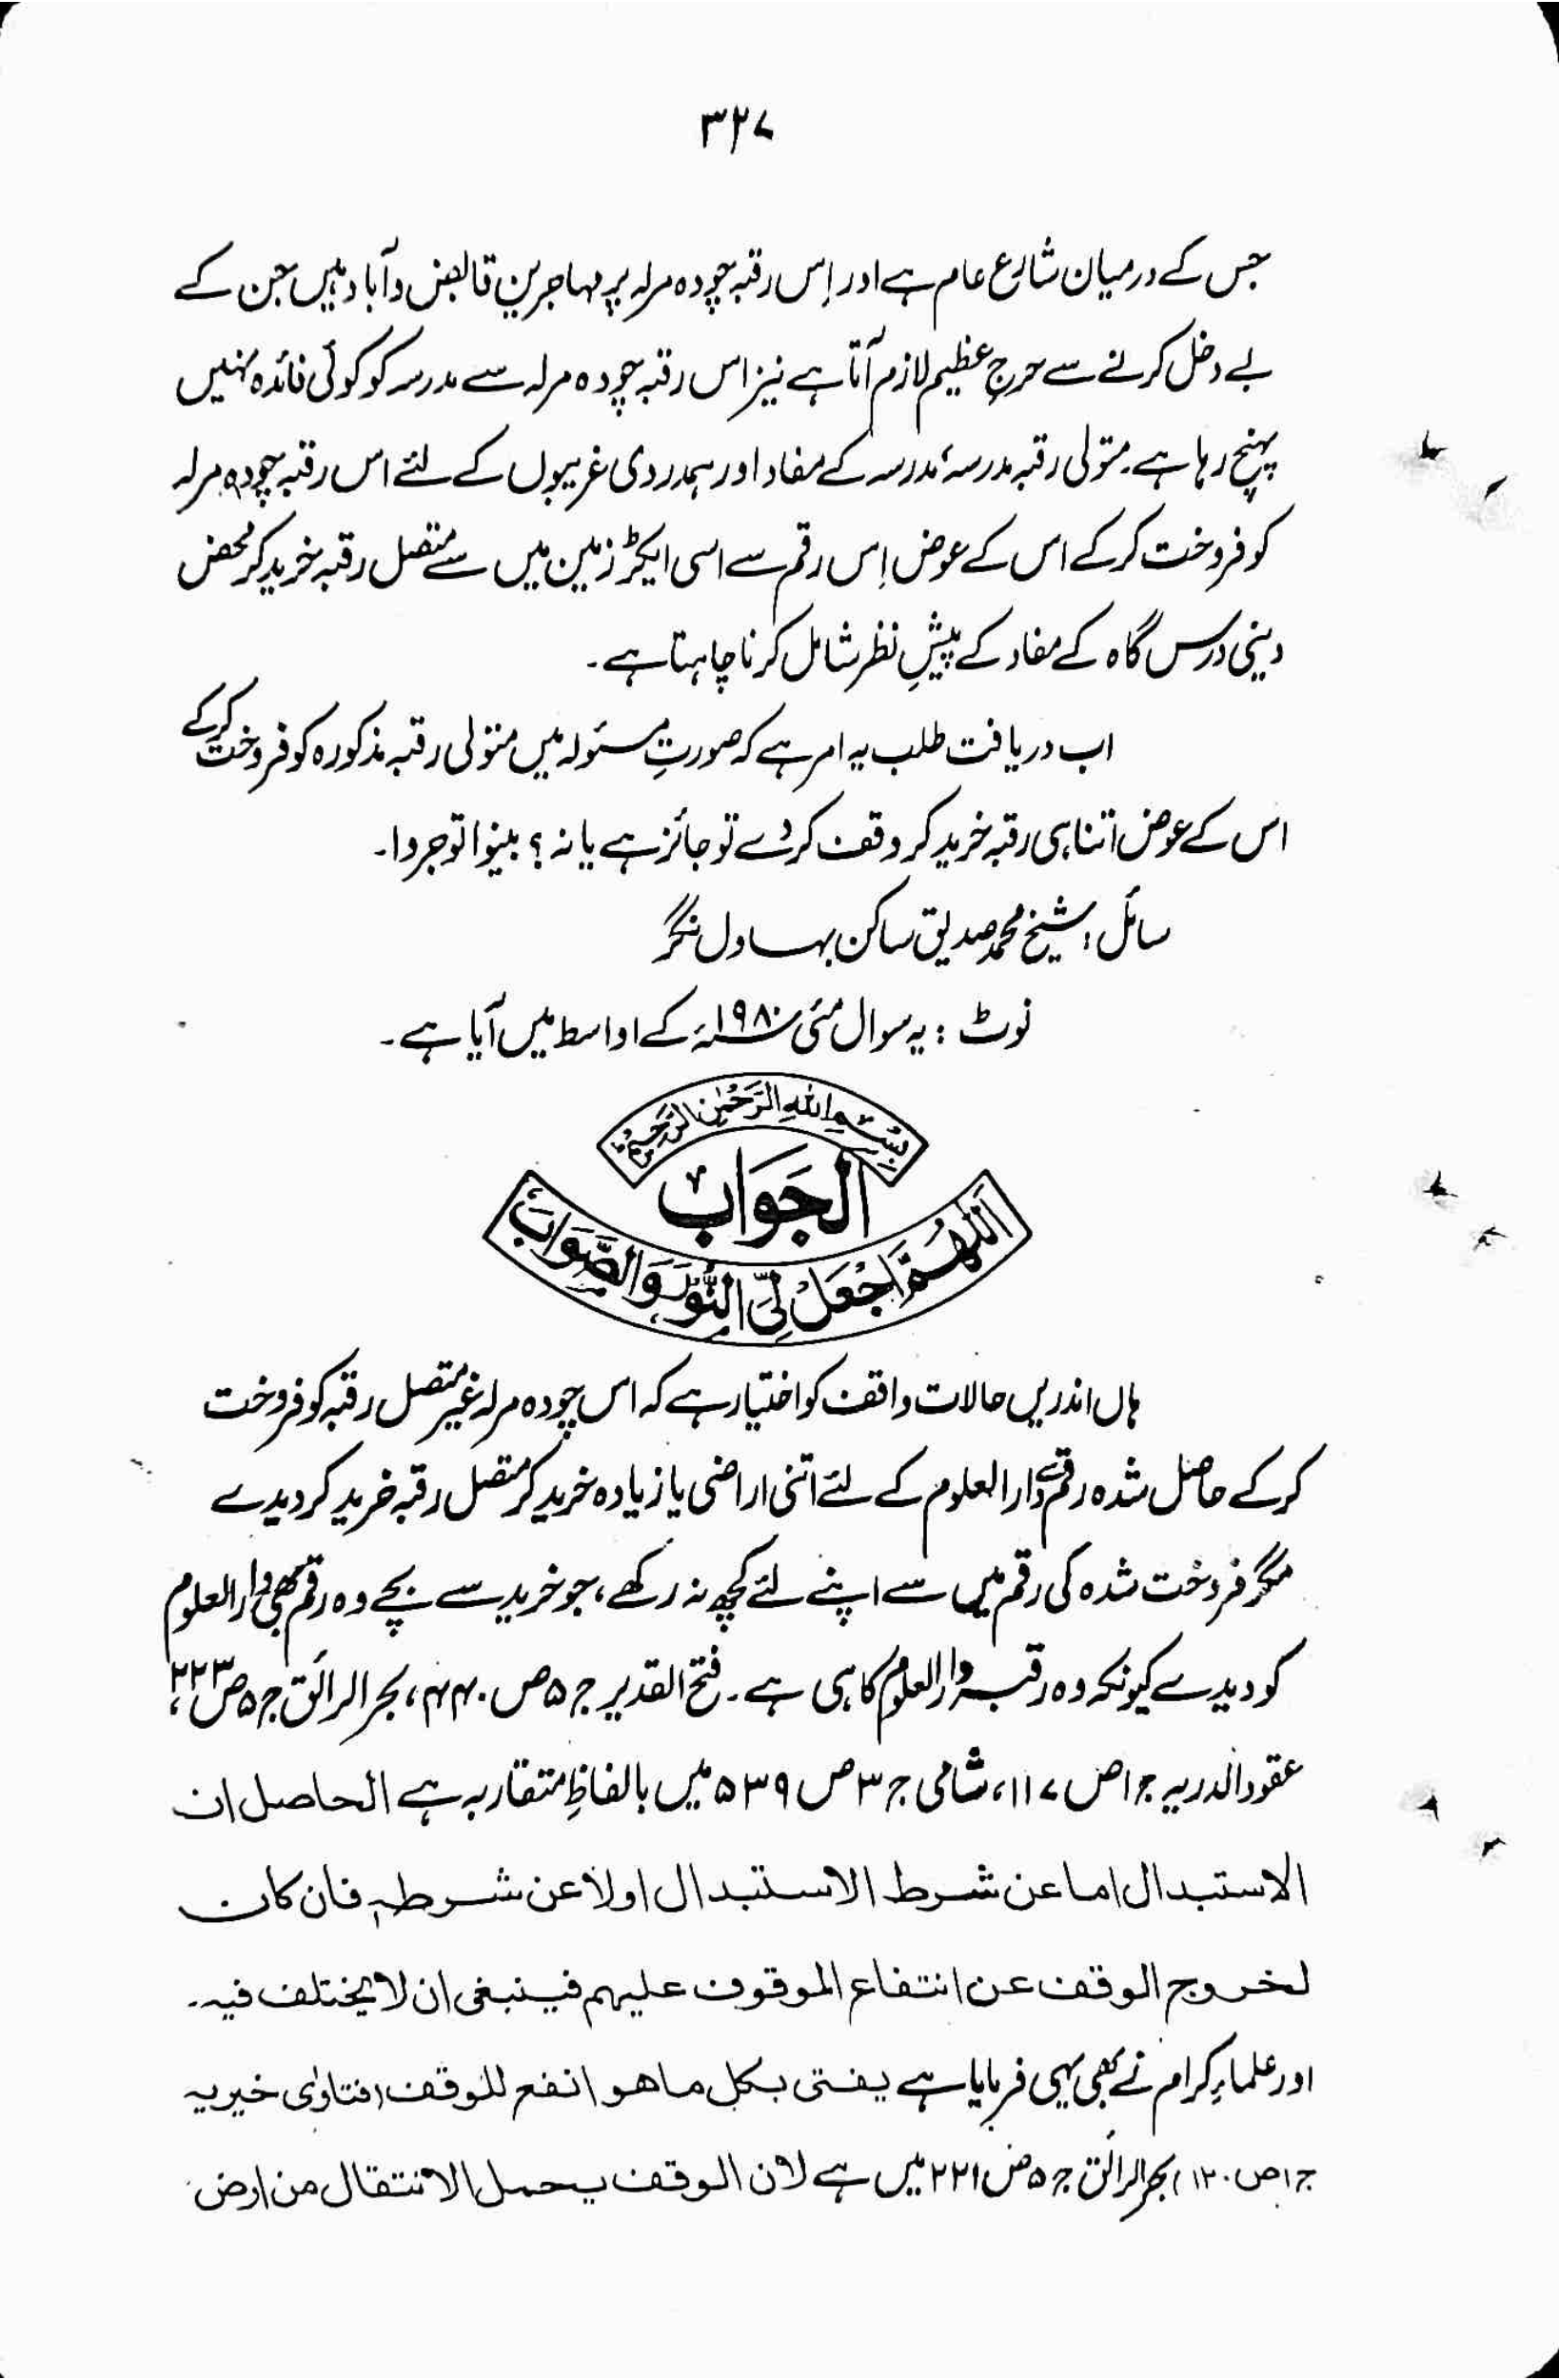 ۳۲۷
جس کے درمیان شارع عام ہے اور اِس رقبہ چودہ مرلہ پر مہاجرین قابض و آباد ہیں جن کے
بے دخل کرنے سے حرجِ عظیم لازم آتا ہے نیز اس رقبہ چودہ مرلہ سے مدرسہ کو کوئی فائدہ نہیں
پہنچ رہا ہے۔ متولی رقبہ مدرسہٴ مدرسہ کے مفاد اور ہمدردی غریبوں کے لئے اس رقبہ چودہ مرلہ
کو فروخت کرکے اس کے عوض اِس رقم سے اسی ایکڑ زمین میں سے متصل رقبہ خرید کر محض
دینی درس گاہ کے مفاد کے پیشِ نظر شامل کرنا چاہتا ہے۔
اب دریافت طلب یہ امر ہے کہ صورتِ مسئولہ میں متولی رقبہ مذکورہ کو فروخت کرکے
اس کے عوض اتنا ہی رقبہ خرید کر وقف کر دے تو جائز ہے یا نہ؟ بینوا توجروا۔
سائل: شیخ محمد صدیق ساکن بہاول نگر
نوٹ: یہ سوال مئی ۱۹۸۰ء کے اواسط میں آیا ہے۔
بِسْمِ اللهِ الرَّحْمٰنِ الرَّحِيْمِ
اَلْجَوَابُ
اَللّٰهُمَّ اجْعَلْ لِیَ النُّوْرَ وَالصَّوَابَ
ہاں اندریں حالات واقف کو اختیار ہے کہ اس چودہ مرلہ غیر متصل رقبہ کو فروخت
کرکے حاصل شدہ رقم سے دارالعلوم کے لئے اتنی اراضی یا زیادہ خرید کر متصل رقبہ خرید کر دیدے
مگر فروخت شدہ کی رقم میں سے اپنے لئے کچھ نہ رکھے، جو خرید سے بچے وہ رقم بھی دارالعلوم
کو دیدے کیونکہ وہ رقبہ دارالعلوم کا ہی ہے۔ فتح القدیر ج ۵ ص ۴۴۰، بحر الرائق ج ۵ ص ۲۲۳،
عقود الدریہ ج ۱ ص ۱۱۷، شامی ج ۳ ص ۵۳۹ میں بالفاظِ متقاربہ ہے الحاصل ان
الاستبدال اما عن شرط الاستبدال اولا عن شرطہ فان کان
لخروج الوقف عن انتفاع الموقوف علیہم فینبغی ان لا یختلف فیہ۔
اور علماءِ کرام نے بھی یہی فرمایا ہے یفتی بکل ما ھو انفع للوقف (فتاوٰی خیریہ
ج ۱ ص ۱۲۰) بحر الرائق ج ۵ ص ۲۲۱ میں ہے لان الوقف یحمل الانتقال من ارض